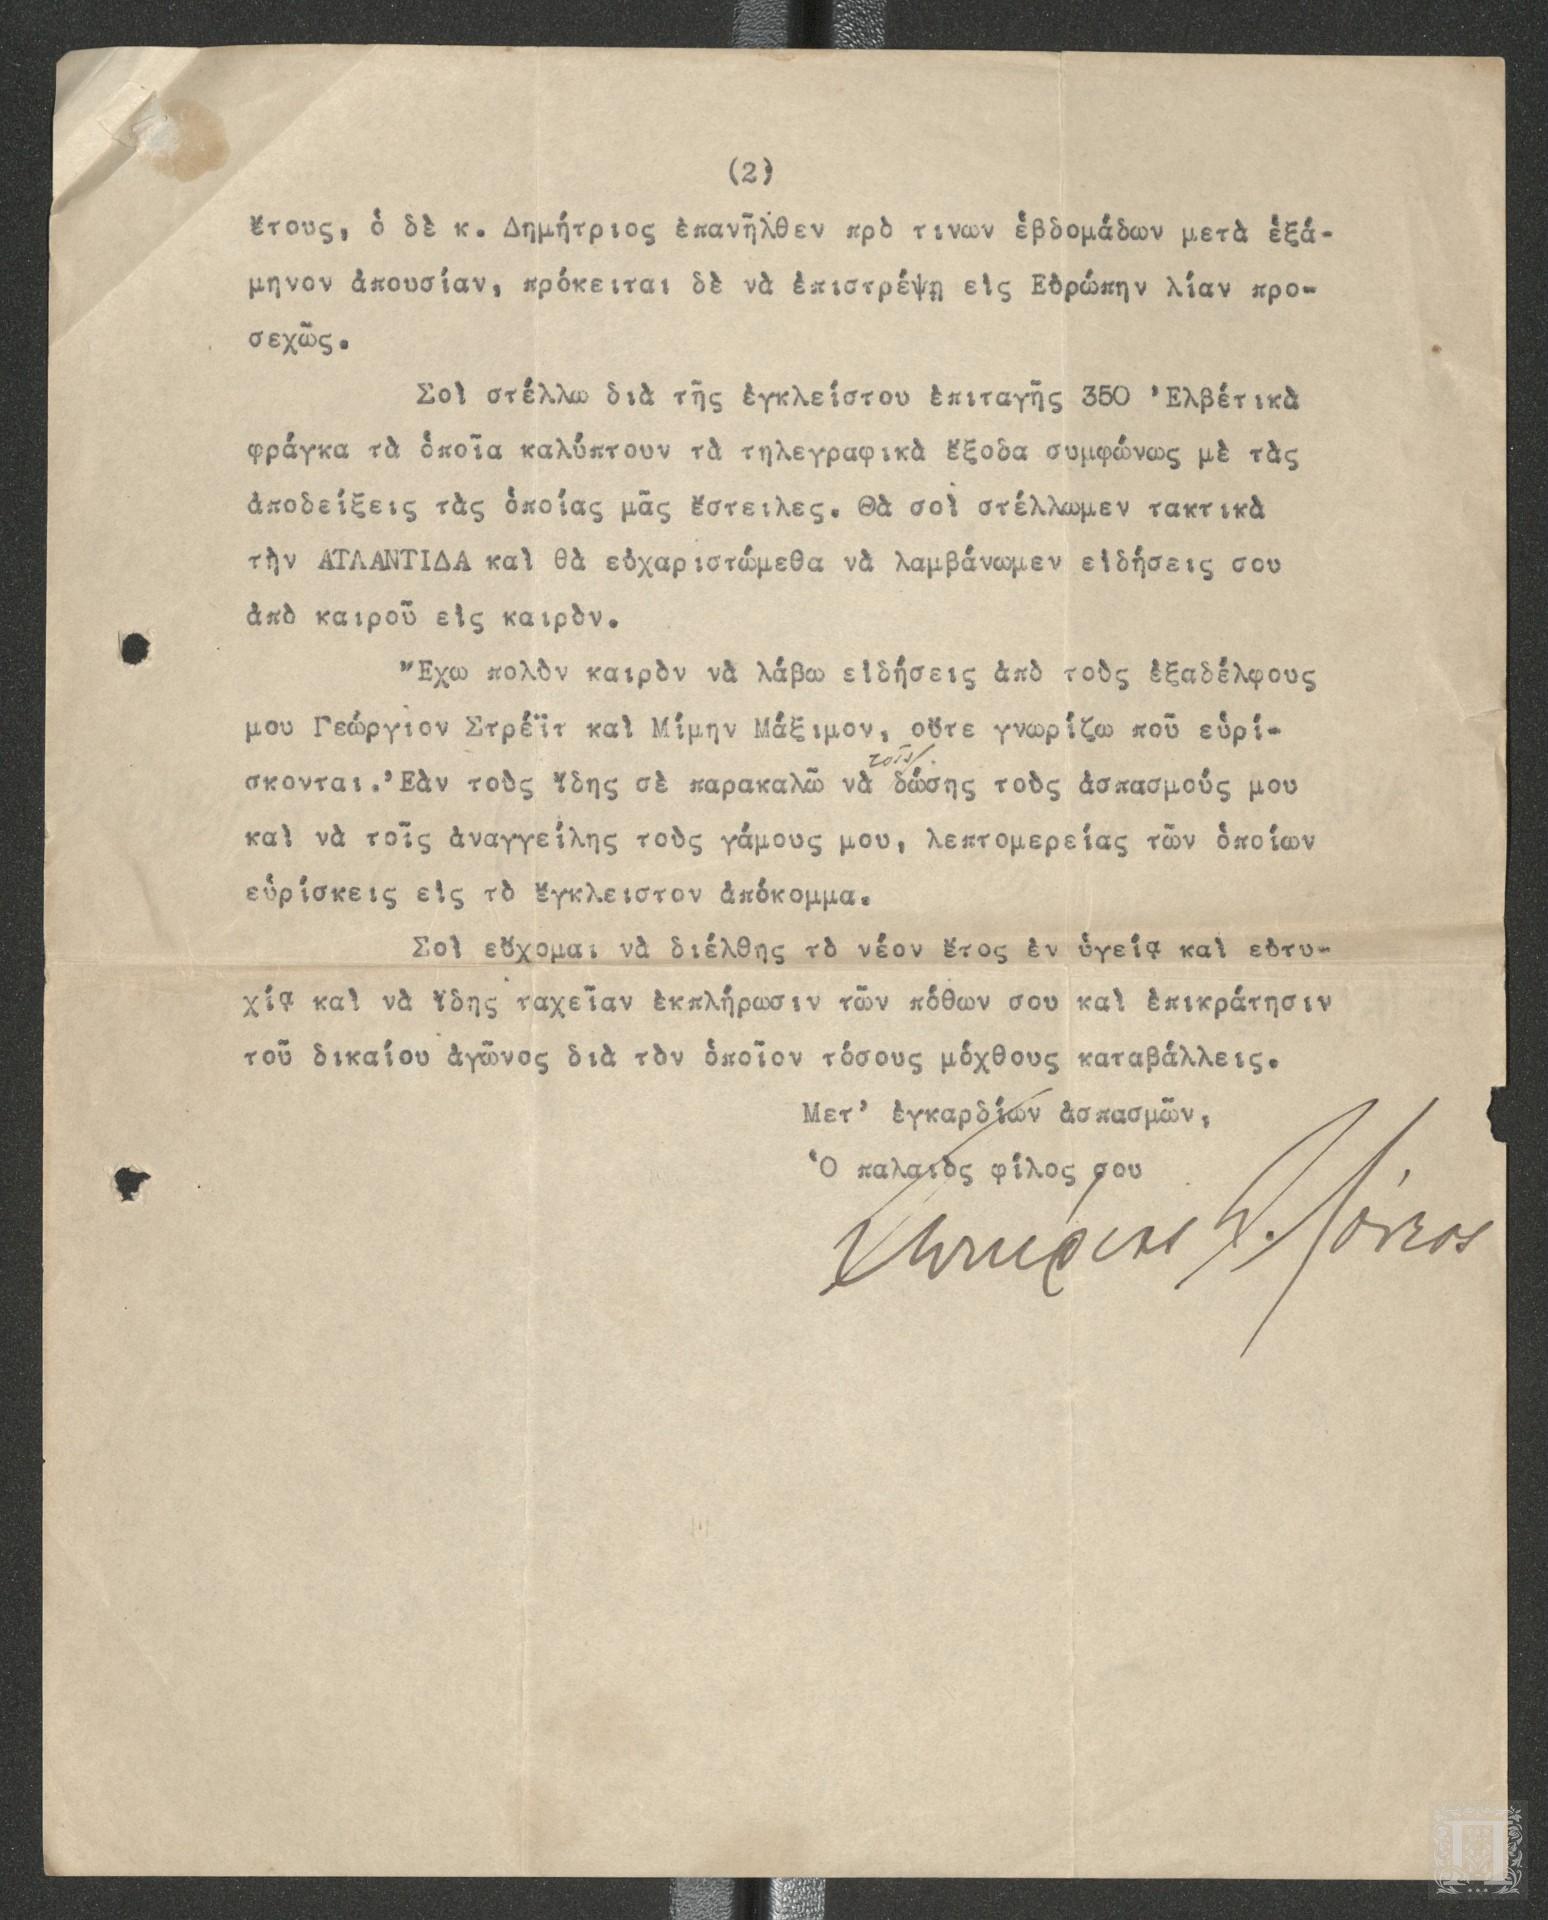 (2)
ἔτους, ὁ δὲ κ. Δημήτριος ἐπανῆλθεν πρὸ τινων ἑβδομάδων μετὰ ἑξά-
μηνον ἀπουσίαν, πρόκειται δὲ νὰ ἐπιστρέψῃ εἰς Εὐρώπην λίαν προ-
σεχῶς.
Σοὶ στέλλω διὰ τῆς ἐγκλείστου ἐπιταγῆς 350 'Ελβέτικὰ
φράγκα τὰ ὁποῖα καλύπτουν τὰ τηλεγραφικὰ ἔξοδα συμφώνως μὲ τὰς
ἀποδείξεις τὰς ὁποίας μᾶς ἔστειλες. Θὰ σοὶ στέλλωμεν τακτικὰ
τὴν ΑΤΛΑΝΤΙΔΑ καὶ θὰ εὐχαριστώμεθα νὰ λαμβάνωμεν εἰδήσεις σου
ἀπὸ καιροῦ εἰς καιρὸν.
"Εχω πολὺν καιρὸν νὰ λάβω εἰδήσεις ἀπὸ τοὺς ἐξαδέλφους
μου Γεώργιον Στρέϊτ καὶ Μίμην Μάξιμον, οὔτε γνωρίζω ποῦ εὑρί-
σκονται.'Εὰν τοὺς ἴδης σὲ παρακαλῶ νὰ τοῖς δώσης τοὺς ἀσπασμούς μου
καὶ νὰ τοῖς ἀναγγείλης τοὺς γάμους μου, λεπτομερείας τῶν ὁποίων
εὑρίσκεις εἰς τὸ ἔγκλειστον ἀπόκομμα.
Σοὶ εὔχομαι νὰ διέλθης τὸ νέον ἔτος ἐν ὑγείᾳ καὶ εὐτυ-
χίᾳ καὶ νὰ ἴδης ταχεῖαν ἐκπλήρωσιν τῶν πόθων σου καὶ ἐπικράτησιν
τοῦ δικαίου ἀγῶνος διὰ τὸν ὁποῖον τόσους μόχθους καταβάλλεις.
Μετ' ἐγκαρδίων ἀσπασμῶν,
Ὁ παλαιὸς φίλος σου